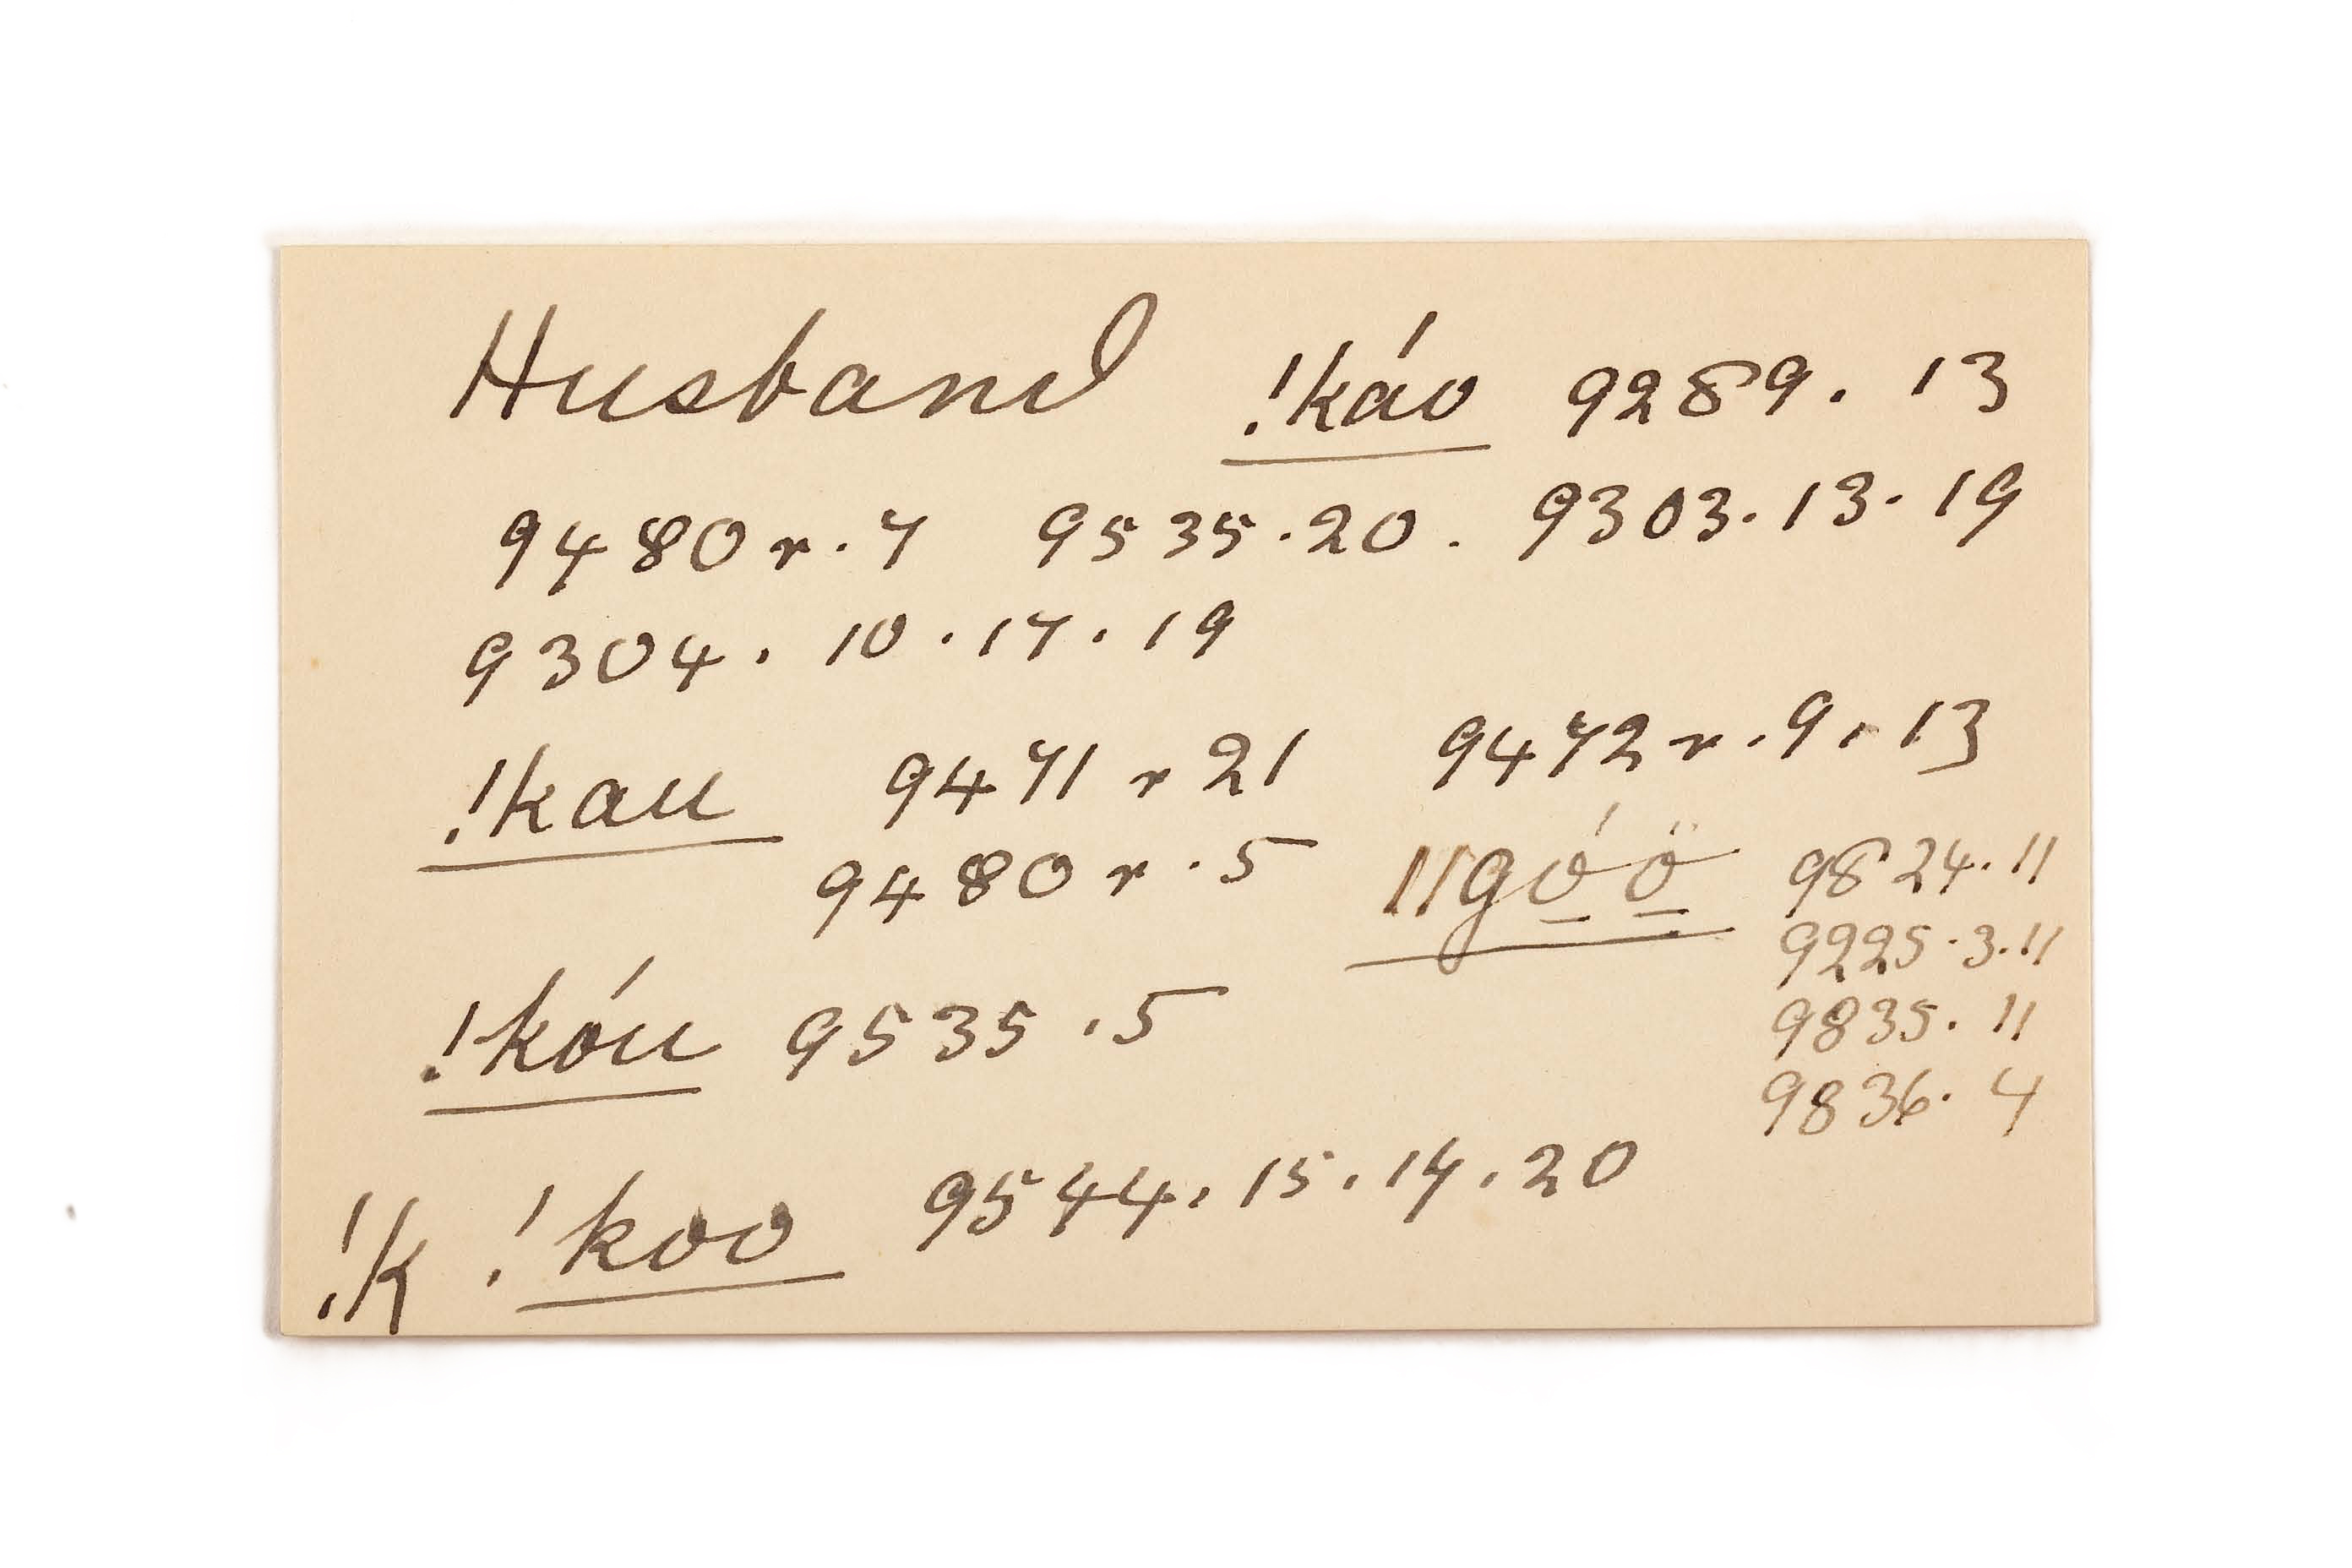 Husband !káo 9289. 13
9480 r. 7 9535.20. 9303.13.19
9304. 10.17.19
!kau 9471 r 21 9472 r. 9. 13
9480 r. 5 ||gó̠ö̠ 9824.11
9225.3.11
!kóu 9535.5 9835. 11
9836. 4
!k !koo 9544. 15. 17. 20